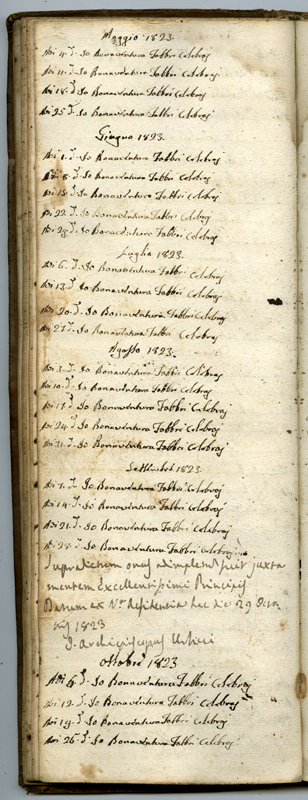 Maggio 1823.
Adi 4. d.º Io Bonaventura Fabbri Celebraj
Adi 11. d.º Io Bonaventura Fabbri Celebraj
Adi 18. d.º Io Bonaventura Fabbri Celebraj
Adi 25 d.º Io Bonaventura Fabbri Celebraj
Giugno 1823.
Adi 1. d.º Io Bonaventura Fabbri Celebraj
Adi 8. d.º Io Bonaventura Fabbri Celebraj
Adi 15. d.º Io Bonaventura Fabbri Celebraj
Adi 22. d.º Io Bonaventura Fabbri Celebraj
Adi 29. d.º Io Bonaventura Fabbri Celebraj
Luglio 1823.
Adi 6. d.º Io Bonaventura Fabbri Celebraj
Adi 13. d.º Io Bonaventura Fabbri Celebraj
Adi 20. d.º Io Bonaventura Fabbri Celebraj
Adi 27. d.º Io Bonaventura Fabbri Celebraj
Agosto 1823.
Adi 3. d.º Io Bonaventura Fabbri Celebraj
Adi 10. d.º Io Bonaventura Fabbri Celebraj
Adi 17. d.º Io Bonaventura Fabbri Celebraj
Adi 24. d.º Io Bonaventura Fabbri Celebraj
Adi 31. d.º Io Bonaventura Fabbri Celebraj
Settembre 1823
Adi 7. d.º Io Bonaventura Fabbri Celebraj
Adi 14. d.º Io Bonaventura Fabbri Celebraj
Adi 21. d.º Io Bonaventura Fabbri Celebraj
Adi 28. d.º Io Bonaventura Fabbri Celebraj
Supradictum onus adimpletum fuit juxta
mentem Excellentissimi Principis
Datum ex N.ª Residentia hac die 29
1823
Archiepiscopus Urbini
Ottobre 1823
Adi 5. d.º Io Bonaventura Fabbri Celebraj
Adi 12. d.º Io Bonaventura Fabbri Celebraj
Adi 19. d.º Io Bonaventura Fabbri Celebraj
Adi 26. d.º Io Bonaventura Fabbri Celebraj